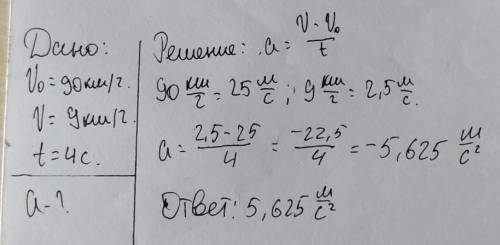 Дано:
V₀ = 90 км/г.
V = 9 км/г.
t = 4 с.
a - ?
Решение: a = (V - V₀)/t
90 км/г = 25 м/с ; 9 км/г = 2,5 м/с.
a = (2,5 - 25)/4 = (-22,5)/4 = -5,625 м/с²
Ответ: 5,625 м/с²